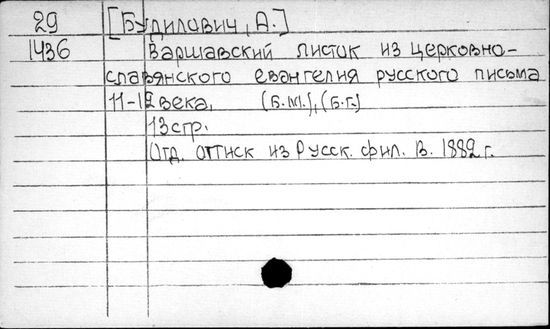 29 [Будилович, А.]
1436 Варшавский листок из церковно-
славянского евангелия русского письма
11-12 века, (Б.м.), (Б.г.)
13 стр.
Отд. оттиск из Русск. фил. В. 1882 г.